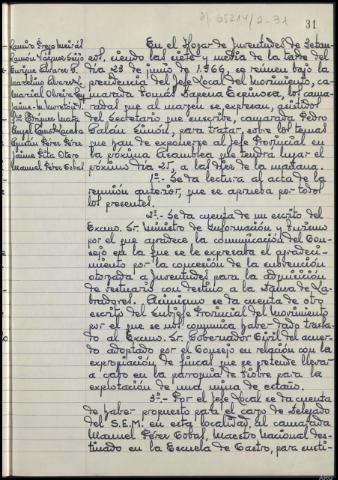 31
Ramiro Orejo Meirás
Ramón Vázquez Seijo
Enrique Alvarez P.
Marcelino Alvarez L.
Marcial Oliveira
Jaime
Jose Enrique Mato
Angel
Agustin Pérez Pérez
Jaime Pita Otero
Manuel Pérez Cobas
En el Hogar de Juventudes de
, siendo las siete y media de la tarde del
día 23 de junio de 1.966, se reunen bajo la
presidencia del Jefe Local del Movimiento, ca-
marada Tomás Espinosa, los cama-
radas que al margen se expresan, asistidos
del Secretario que suscribe, camarada Pedro
Galán Simón, para tratar, sobre los temas
que han de exponerse al Jefe Provincial en
la próxima Asamblea que tendrá lugar el
próximo día 25, a las diez de la mañana.
1º.- Se da lectura al acta de la
reunión anterior, que se aprueba por todos
los presentes.
2º.- Se da cuenta de un escrito del
Excmo. Sr. Ministro de Información y Turismo
por el que agradece la comunicación del Con-
sejo en la que se le expresaba el agradeci-
miento por la concesión de la subvención
otorgada a Juventudes para la adquisición
de vestuario con destino a la Danza de La-
bradores. Asimismo se da cuenta de otro
escrito del Subjefe Provincial del Movimiento
por el que se nos comunica haber dado trasla-
do al Excmo. Sr. Gobernador Civil del acuer-
do adoptado por el Consejo en relación con la
expropiación de fincas que se pretende llevar
a cabo en la parroquia de Tiobre para la
explotación de una mina de estaño.
3º.- Por el Jefe Local se da cuenta
de haber propuesto para el cargo de Delegado
del S.E.M. en esta localidad, al camarada
Manuel Pérez Cobas, Maestro Nacional des-
tinado en la Escuela de Castro, para susti-